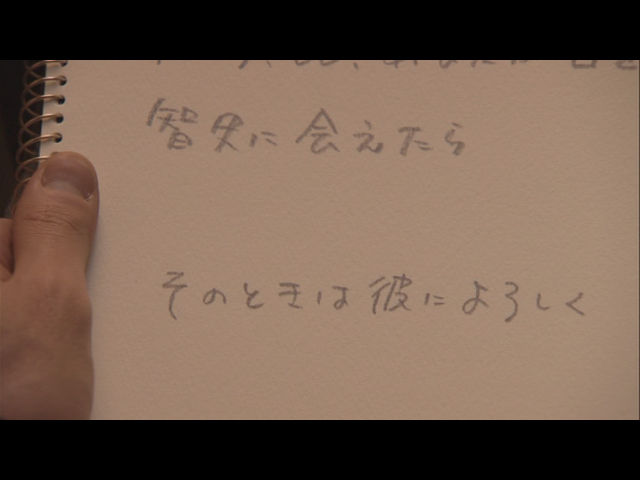 智史に会えたら
そのときは彼によろしく